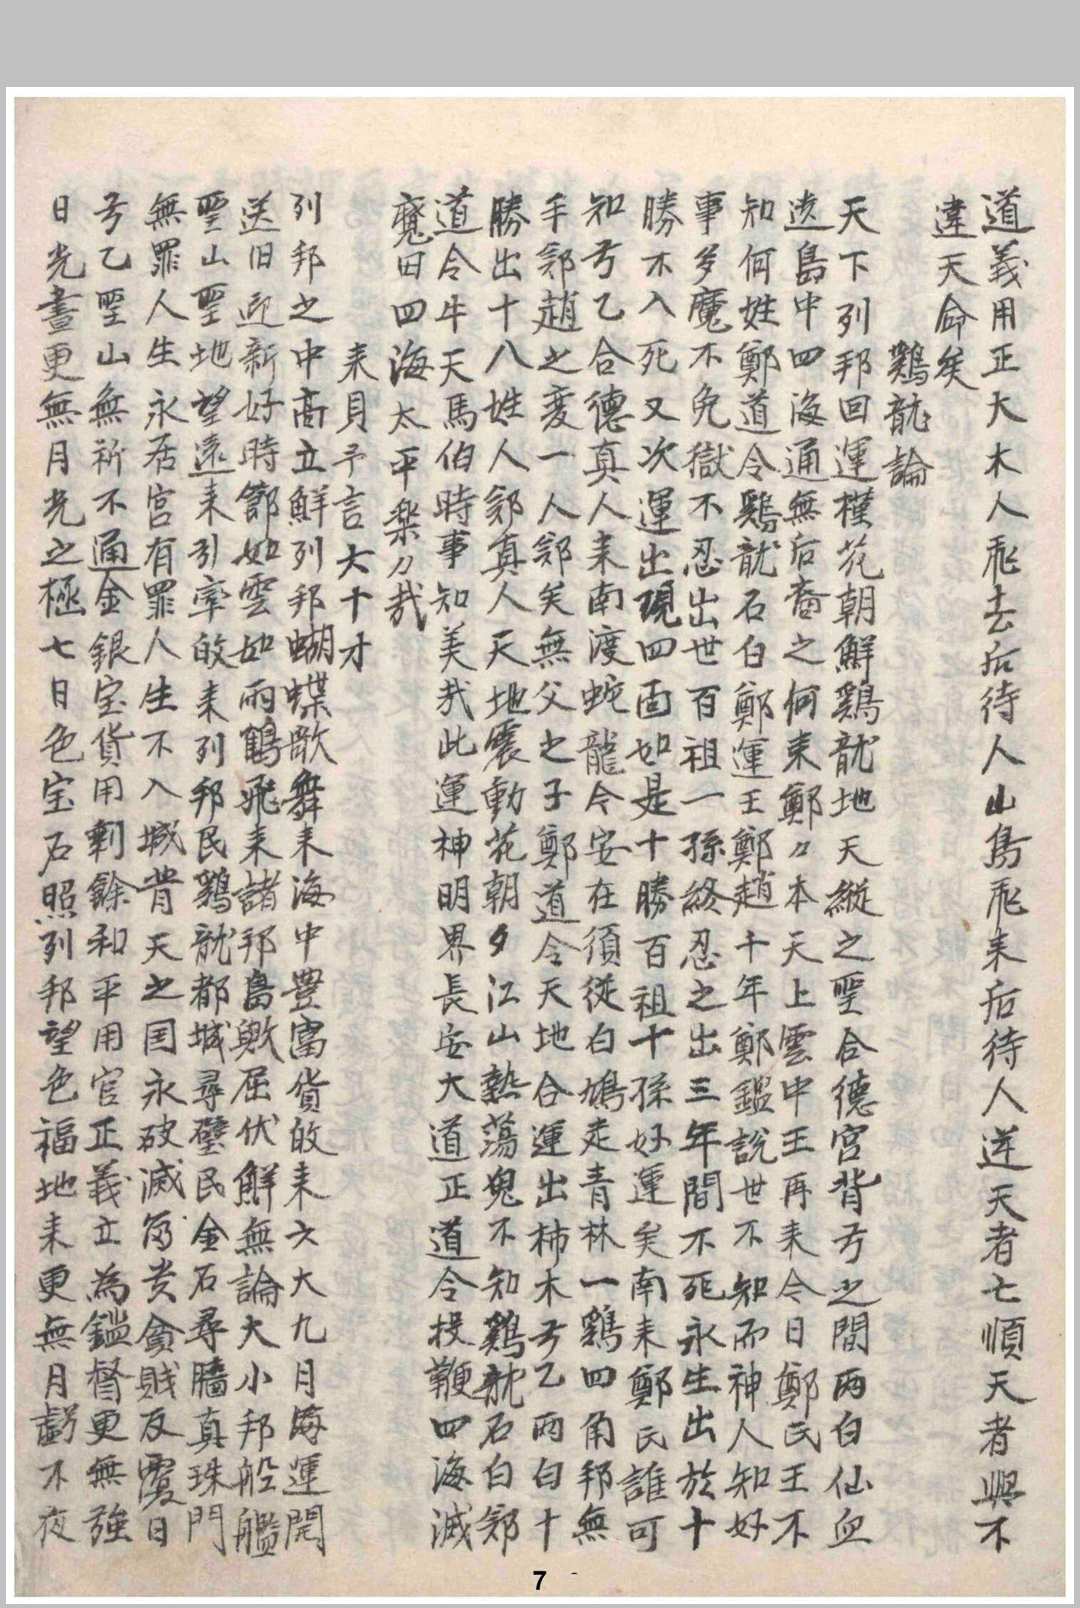 道義用正大木人飛去后待人山鳥飛来后待人逆天者亡順天者興不
違天命矣
鷄龍論
天下列邦回運槿花朝鮮鷄龍地天縱之聖合德宮背弓之間両白仙血
遠島中四海通無后裔之何来鄭〃本天上雲中王再来今日鄭氏王不
知何姓鄭道令鷄龍石白鄭運王鄭趙千年鄭鑑說世不知而神人知好
事多魔不免獄不忍出世百祖一孫終忍之出三年間不死永生出於十
勝不入死又次運出現四面如是十勝百祖十孫好運矣南来鄭氏誰可
知弓乙合德真人来南渡蛇龍今安在須從白鳩走青林一鷄四角邦無
手鄭趙之変一人鄭矣無父之子鄭道令天地合運出柿木弓乙両白十
勝出十八姓人鄭真人天地震動花朝夕江山熱蕩鬼不知鷄龍石白鄭
道令牛天馬伯時事知美哉此運神明界長安大道正道令投鞭四海滅
魔田四海太平樂〃哉
来貝予言大十才
列邦之中高立鮮列邦蝴蝶歌舞来海中豊富貨攸来六大九月海運開
送旧迎新好時節如雲如雨鶴飛来諸邦島嶼屈伏鮮無論大小邦船艦
聖山聖地望遠来引率攸来列邦民鷄龍都城尋璧民金石尋牆真珠門
無罪人生永居宮有罪人生不入城背天之国永破滅富貴貧賤反覆日
弓乙聖山無祈不通金銀宝貨用剰餘和平用官正義立為鑑督更無強
日光晝更無月光之極七日色宝石照列邦望色福地来更無月虧不夜
7